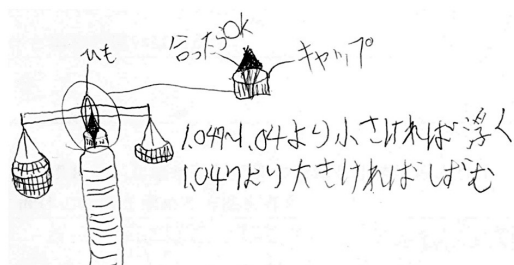 ひも
合ったらOK
キャップ
1.047~1.04より小さければ浮く
1.047より大きければしずむ